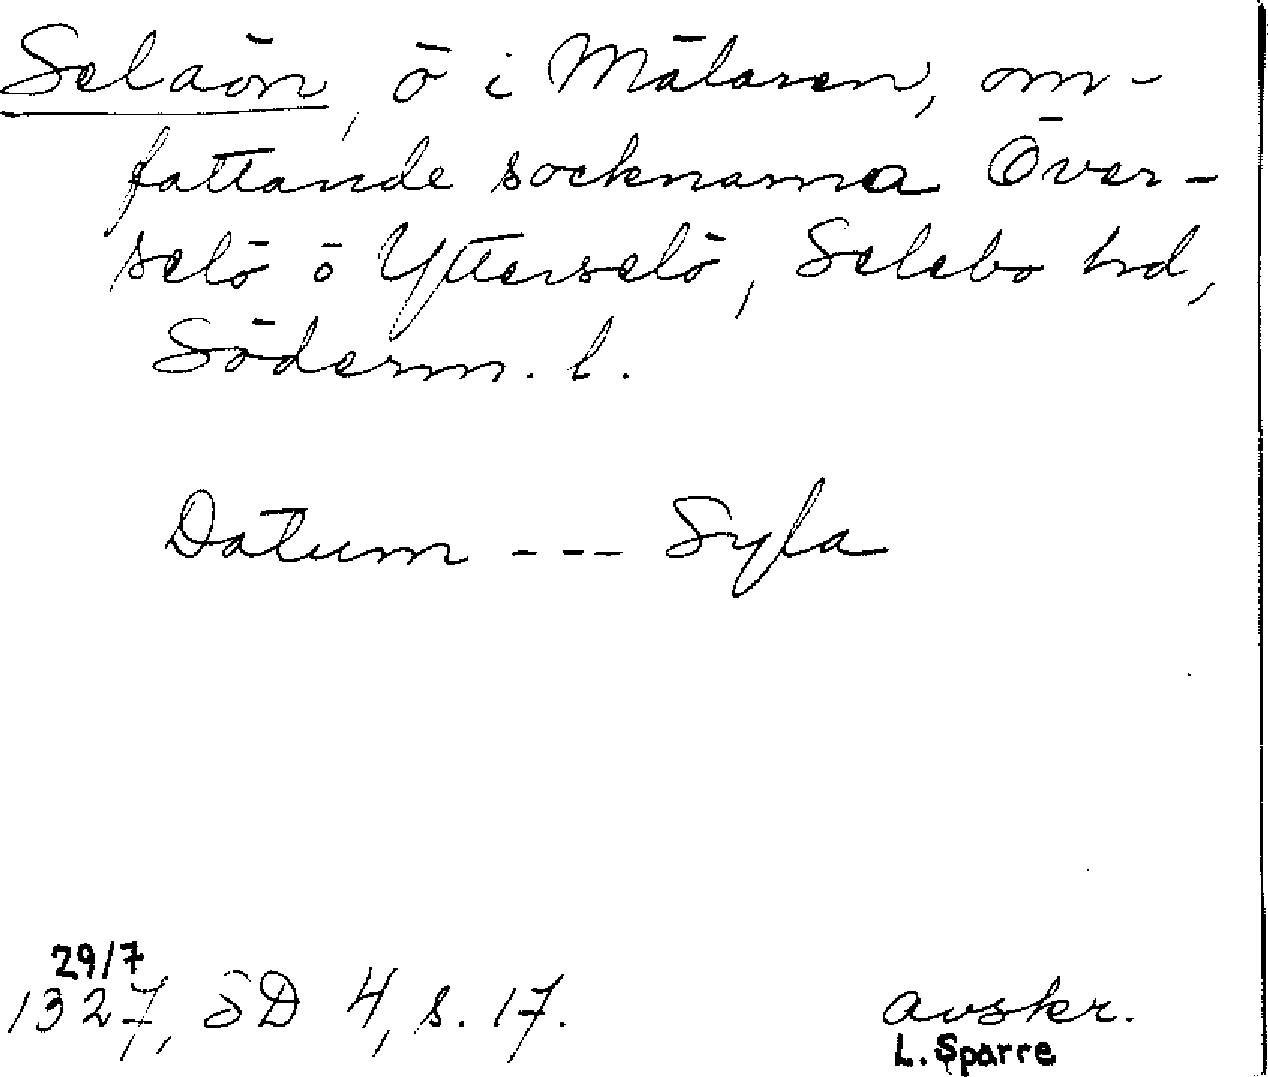 Selaön, ö i Mälaren, om-
fattande socknarna Över-
selö o Ytterselö, Selebo hd,
Söderm. l.
Datum --- Syla
29/7
1327, SD 4, s. 17.
avskr.
L. Sparre